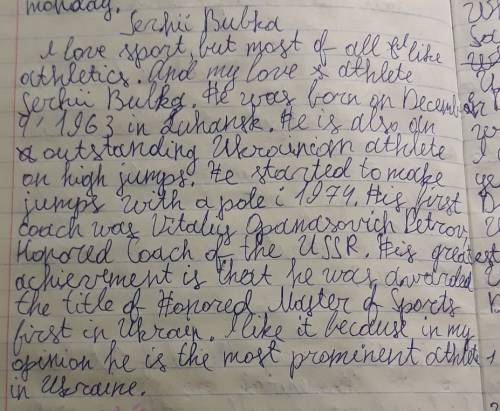 monday.
Serhii Bubka
I love sport, but most of all I like
athletics. And my love athlete
Serhii Bubka. He was born on December
4, 1963 in Luhansk. He is also an
outstanding Ukrainian athlete
on high jumps. He started to make
jumps with a pole i 1974. His first
coach was Vitaliy Opanasovich Petrov,
Honored Coach of the USSR. His greatest
achievement is that he was awarded
the title of Honored Master of Sports
first in Ukrain. I like it because in my
opinion he is the most prominent athlete
in Ukraine.